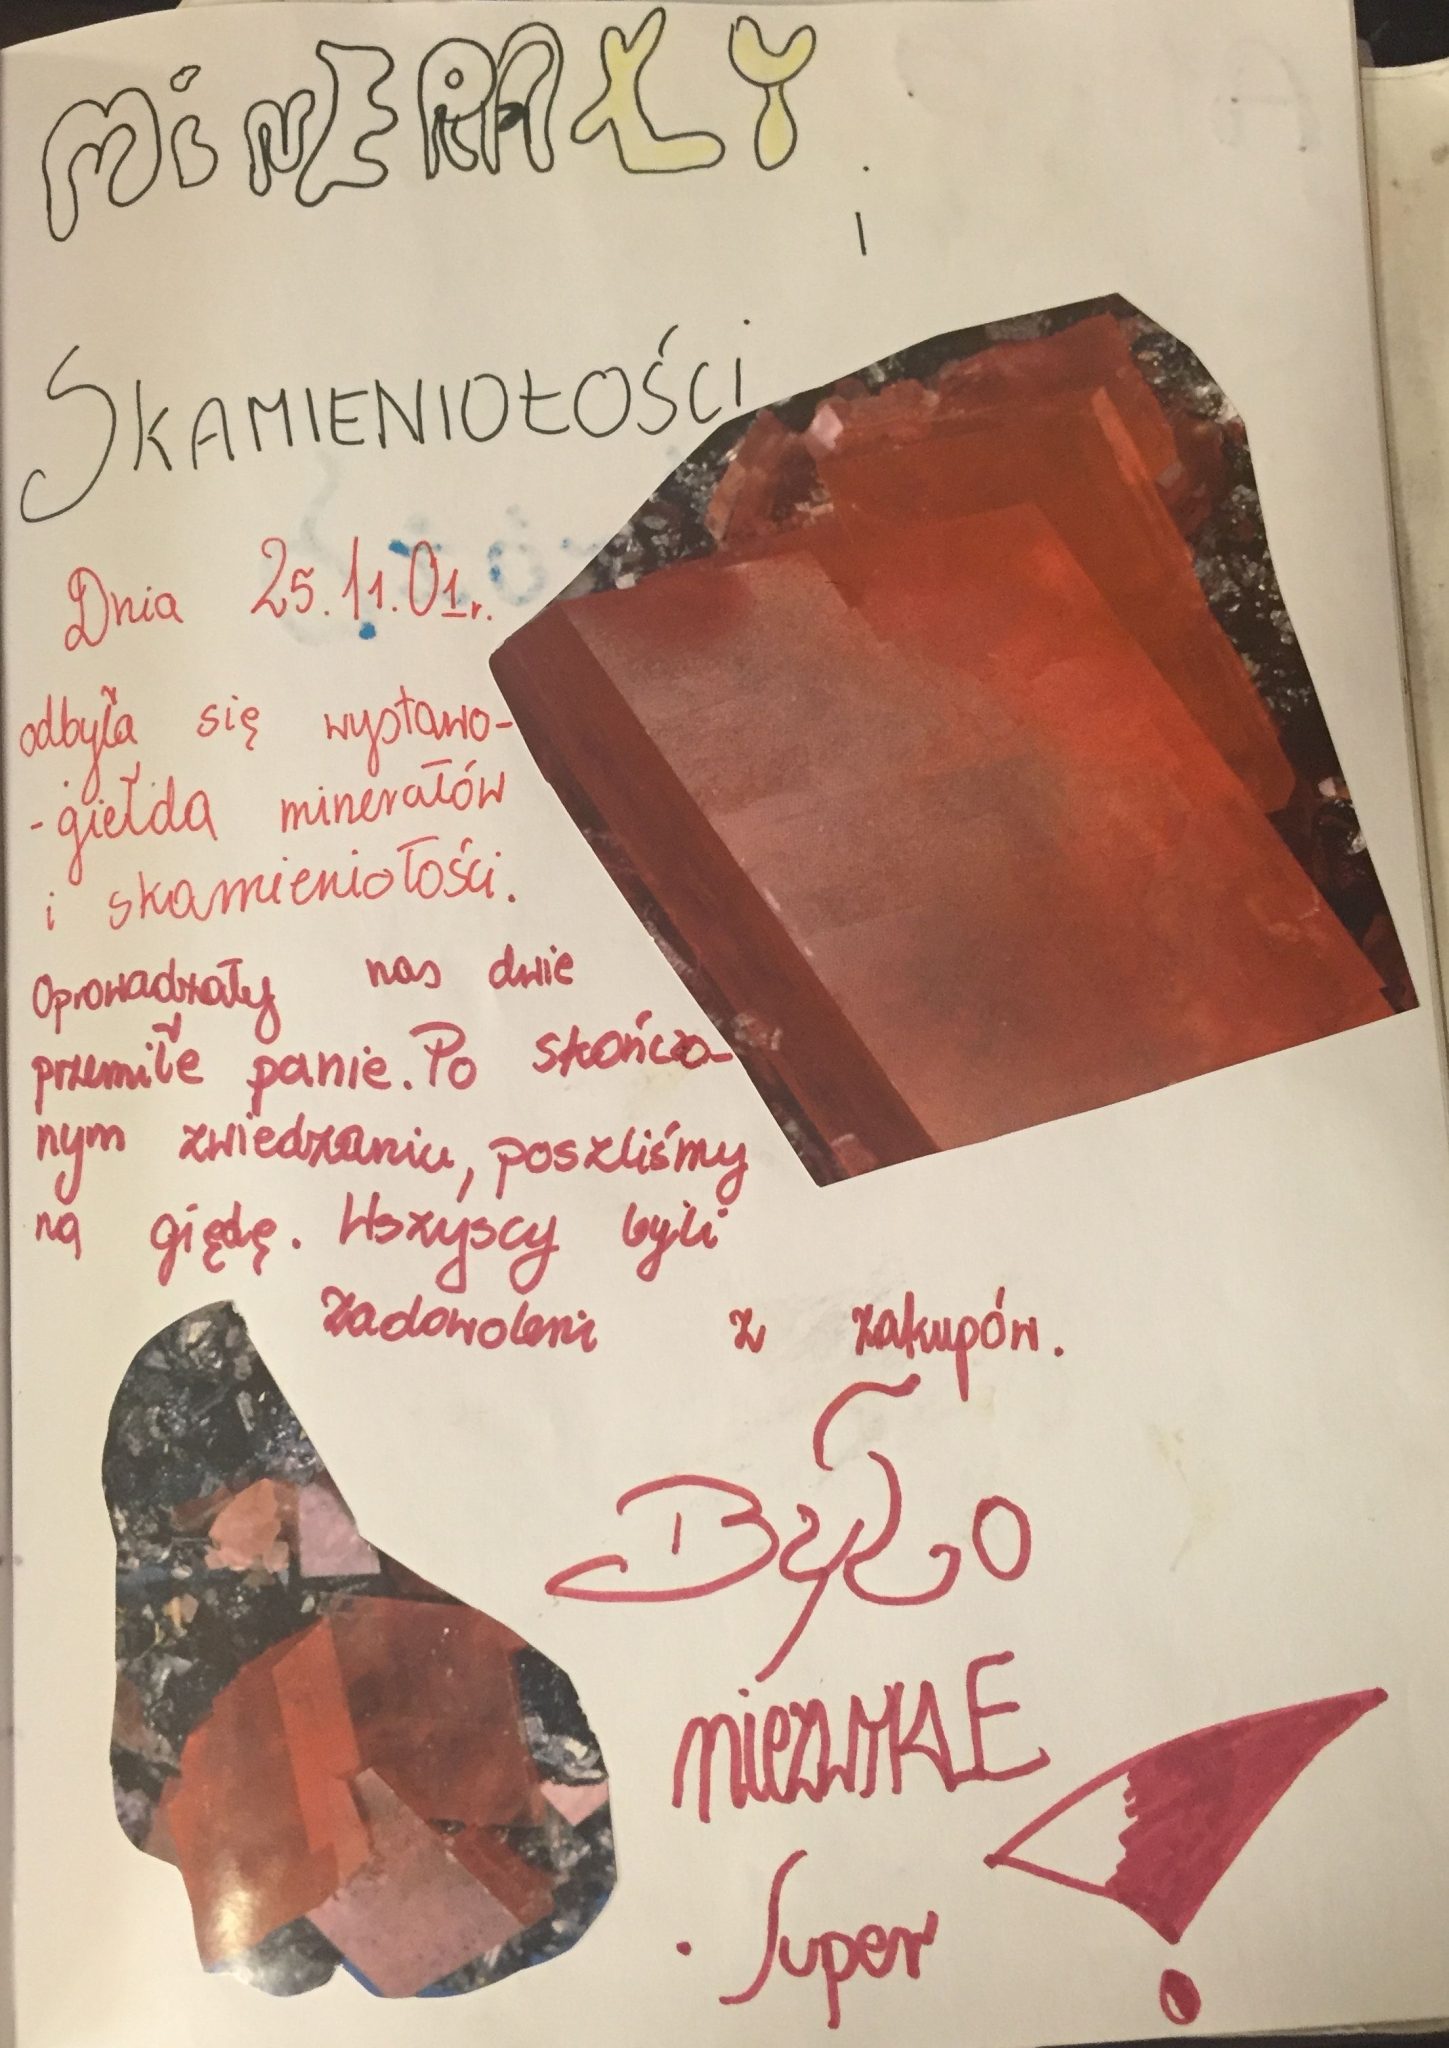 MiNERAŁY
i
SKAMIENIOŁOŚCI
Dnia 25.11.01r.
odbyła się wystawo-
-giełda minerałów
i skamieniołości.
Oprowadzały nas dwie
przemiłe panie. Po skończo-
nym zwiedzaniu, poszliśmy
na giędę. Wszyscy byli
zadowoleni z zakupów.
BYŁO
niezwykLE
Super!